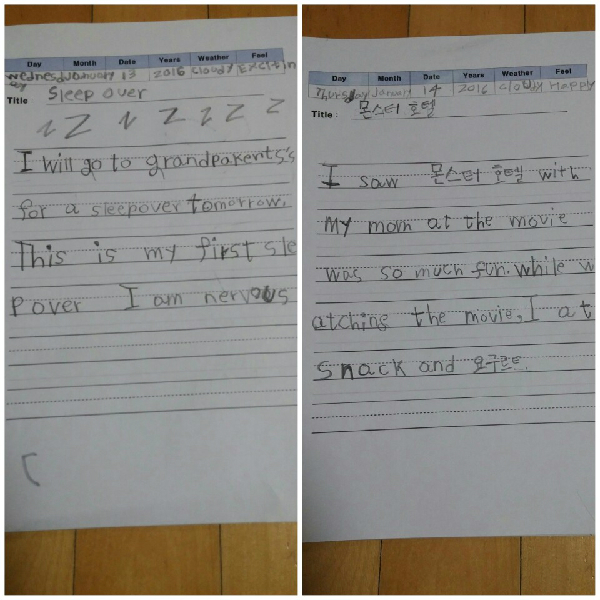 Day Month Date Years Weather Feel
Wednesday January 13 2016 cloudy Excitin
Title Sleep over
z Z z Z z z z
I will go to grandparents's
for a sleepover tomorrow.
This is my first sle
pover I am nervous
Day Month Date Years Weather Feel
Thursday January 14 2016 cloudy Happy
Title : 몬스터 호텔
I saw 몬스터 호텔 with
my mom at the movie
was so much fun. while w
atching the movie, I at
snack and 요구르트.